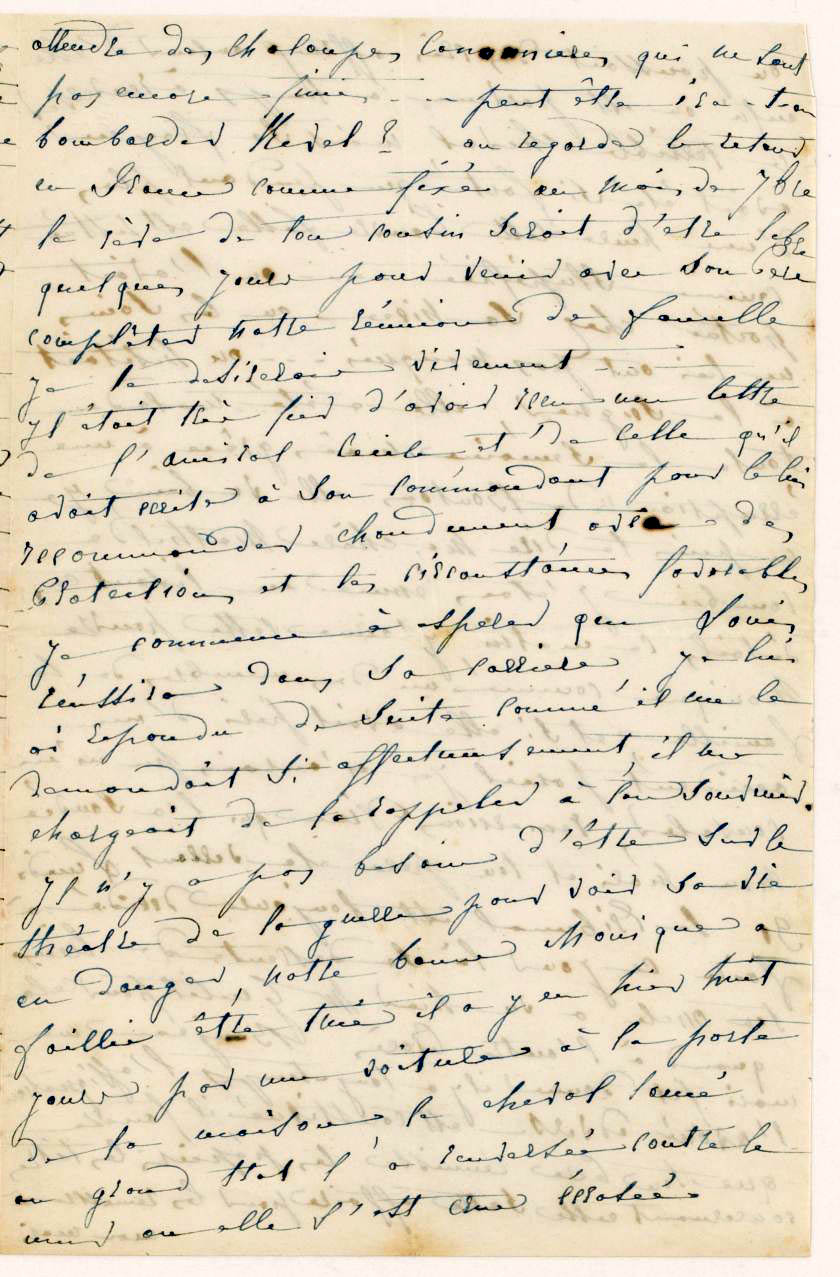 attendre des chaloupes canonnieres qui ne sont
pas encore finies - - - peut être ira-t-on
bombarder Revel ? on regarde le retour
en France comme fixé au mois de 7bre
le rève de ton cousin seroit d'etre libre
quelques jours pour venir avec son père
complêter notre réunion de famille
je le desirerois vivement - - -
yl étoit trés fier d'avoir reçu une lettre
de l'amiral Cécile et de celle qu'il
avoit ecrite à son commandant pour le lui
recommander chaudement avec des
Protections et les circonstances favorables
je commence à esperer que Louis
réussira dans sa carriere je lui
ai repondu de suite comme il me le
demandoit si affectueusement, il me
chargeoit de le rappeler à ton souvenir.
yl n'y a pas besoin d'être sur le
théatre de la guerre pour voir sa vie
en danger, notre bonne Monique a
faillie être tuée il a y eu hier huit
jours par une voiture à la porte
de la maison le cheval lancé
au grand trot l'a renversée contre le
mur ou elle s'est crue écrasée